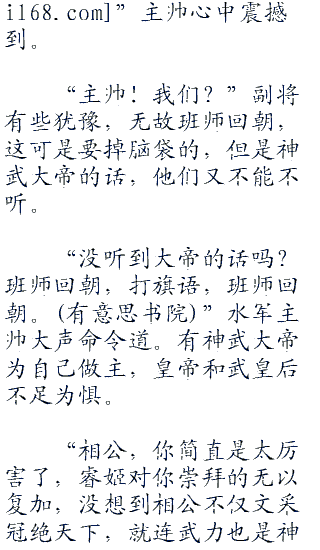 i168.com]”主帅心中震撼
到。
“主帅！我们？”副将
有些犹豫，无故班师回朝，
这可是要掉脑袋的，但是神
武大帝的话，他们又不能不
听。
“没听到大帝的话吗？
班师回朝，打旗语，班师回
朝。(有意思书院)”水军主
帅大声命令道。有神武大帝
为自己做主，皇帝和武皇后
不足为惧。
“相公，你简直是太厉
害了，睿姬对你崇拜的无以
复加，没想到相公不仅文采
冠绝天下，就连武力也是神